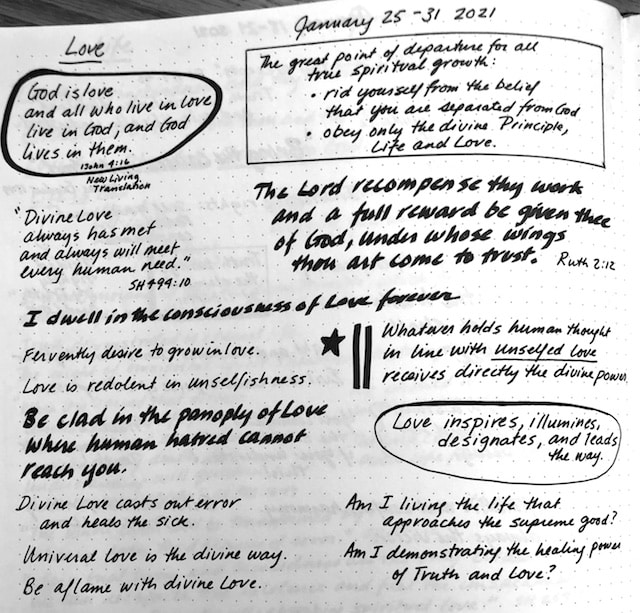 January 25-31 2021
Love
God is love
and all who live in love
live in God, and God
lives in them.
1John 4:16
New Living
Translation
The great point of departure for all
true spiritual growth:
• rid yourself from the belief
that you are separated from God
• obey only the divine Principle,
Life and Love.
"Divine Love
always has met
and always will meet
every human need."
SH 494:10
The Lord recompense thy work
and a full reward be given thee
of God, under whose wings
thou art come to trust. Ruth 2:12
I dwell in the consciousness of Love forever
Fervently desire to grow in love.
Love is redolent in unselfishness.
★ || Whatever holds human thought
in line with unselfed love
receives directly the divine power.
Be clad in the panoply of Love
where human hatred cannot
reach you.
Love inspires, illumines,
designates, and leads
the way.
Divine Love casts out error
and heals the sick.
Univeral Love is the divine way.
Be aflame with divine Love.
Am I living the life that
approaches the supreme good?
Am I demonstrating the healing power
of Truth and Love?